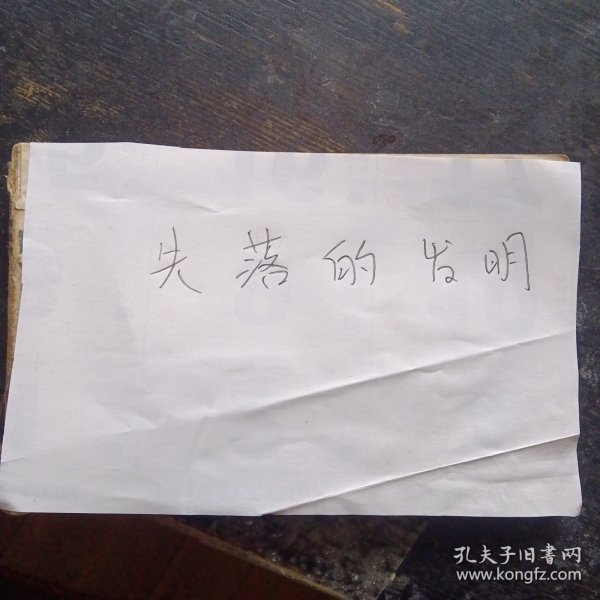 失落的发明
孔夫子旧書网
www.kongfz.com